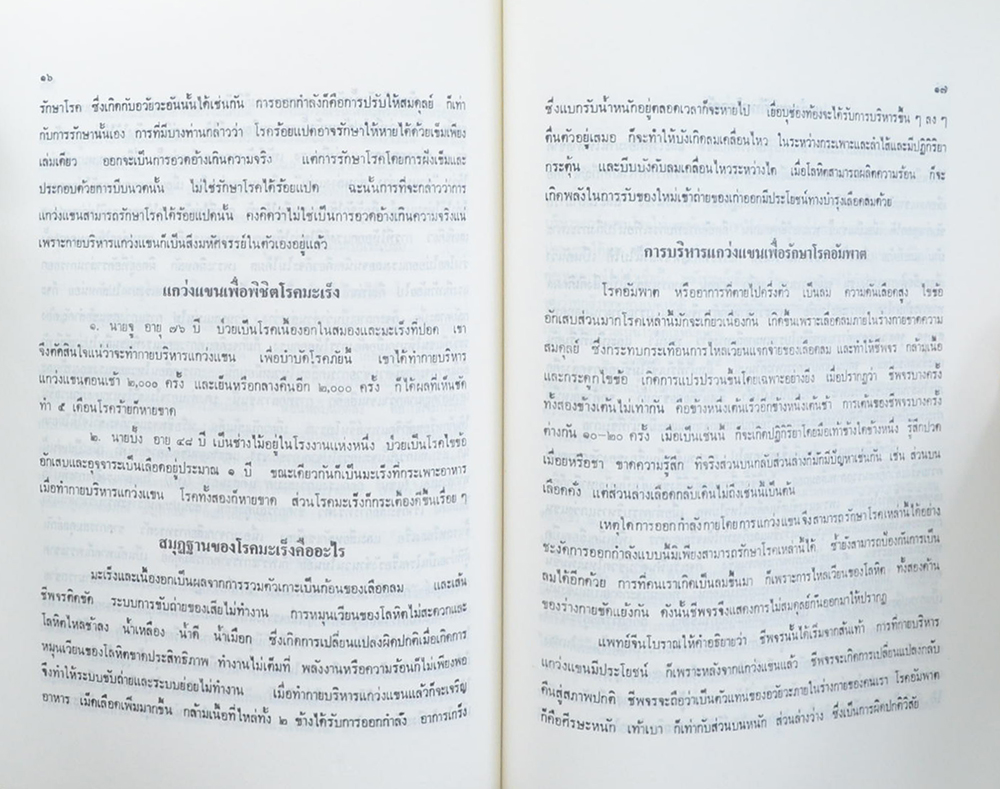 ๑๖
รักษาโรค ซึ่งเกิดกับอวัยวะอันนั้นได้เช่นกัน การออกกำลังก็คือการปรับให้สมดุลย์ ก็เท่า
กับการรักษานั้นเอง การที่มีบางท่านกล่าวว่า โรคร้อยแปดอาจรักษาให้หายได้ด้วยเข็มเพียง
เล่มเดียว ออกจะเป็นการอวดอ้างเกินความจริง แต่การรักษาโรคโดยการฝังเข็มและ
ประกอบด้วยการบีบนวดนั้น ไม่ใช่รักษาโรคได้ร้อยแปด ฉะนั้นการที่จะกล่าวว่าการ
แกว่งแขนสามารถรักษาโรคได้ร้อยแปดนั้น คงคิดว่าไม่ใช่เป็นการอวดอ้างเกินความจริงแน่
เพราะกายบริหารแกว่งแขนก็เป็นสิ่งมหัศจรรย์ในตัวเองอยู่แล้ว
แกว่งแขนเพื่อพิชิตโรคมะเร็ง
๑. นายจู อายุ ๗๖ ปี ป่วยเป็นโรคเนื้องอกในสมองและมะเร็งที่ปอด เขา
จึงตัดสินใจแน่ว่าจะทำกายบริหารแกว่งแขน เพื่อบำบัดโรคภัยนี้ เขาได้ทำกายบริหาร
แกว่งแขนตอนเช้า ๒,๐๐๑ ครั้ง และเย็นหรือกลางคืนอีก ๒,๐๐๐ ครั้ง ก็ได้ผลที่เห็นชัด
ทำ ๕ เดือนโรคร้ายก็หายขาด
๒. นายบั้ง อายุ ๔๘ ปี เป็นช่างไม้อยู่ในโรงงานแห่งหนึ่ง ป่วยเป็นโรคไขข้อ
อักเสบและอุจจาระเป็นเลือดอยู่ประมาณ ๑ ปี ขณะเดียวกันก็เป็นมะเร็งที่กระเพาะอาหาร
เมื่อทำกายบริหารแกว่งแขน โรคทั้งสองก็หายขาด ส่วนโรคมะเร็งก็กระเตื้องดีขึ้นเรื่อย ๆ
สมุฏฐานของโรคมะเร็งคืออะไร
มะเร็งและเนื้องอกเป็นผลจากการรวมตัวเกาะเป็นก้อนของเลือดลม และเส้น
ชีพจรติดขัด ระบบการขับถ่ายของเสียไม่ทำงาน การหมุนเวียนของโลหิตไม่สะดวกและ
โลหิตไหลช้าลง น้ำเหลือง น้ำดี น้ำเมือก ซึ่งเกิดการเปลี่ยนแปลงผิดปกติเมื่อเกิดการ
หมุนเวียนของโลหิตขาดประสิทธิภาพ ทำงานไม่เต็มที่ พลังงานหรือความร้อนก็ไม่เพียงพอ
จึงทำให้ระบบขับถ่ายและระบบย่อยไม่ทำงาน เมื่อทำกายบริหารแกว่งแขนแล้วก็จะเจริญ
อาหาร เม็ดเลือดเพิ่มมากขึ้น กล้ามเนื้อที่ไหล่ทั้ง ๒ ข้างได้รับการออกกำลัง อาการเกร็ง
๑๗
ซึ่งแบกรับน้ำหนักอยู่ตลอดเวลาก็จะหายไป เยื่อบุช่องท้องจะได้รับการบริหารขึ้น ๆ ลง ๆ
ตื่นตัวอยู่เสมอ ก็จะทำให้บังเกิดลมเคลื่อนไหว ในระหว่างกระเพาะและลำไส้และมีปฏิกิริยา
กระตุ้น และบีบบังคับลมเคลื่อนไหวระหว่างไต เมื่อโลหิตสามารถผลิตความร้อน ก็จะ
เกิดพลังในการรับของใหม่เข้าถ่ายของเก่าออกมีประโยชน์ทางบำรุงเลือดลมด้วย
การบริหารแกว่งแขนเพื่อรักษาโรคอัมพาต
โรคอัมพาต หรืออาการที่ตายไปครึ่งตัว เป็นลม ความดันเลือดสูง ไขข้อ
อักเสบส่วนมากโรคเหล่านี้มักจะเกี่ยวเนื่องกัน เกิดขึ้นเพราะเลือดลมภายในร่างกายขาดความ
สมดุลย์ ซึ่งกระทบกระเทือนการไหลเวียนแจกจ่ายของเลือดลม และทำให้ชีพจร กล้ามเนื้อ
และกระดูกไขข้อ เกิดการแปรปรวนขึ้นโดยเฉพาะอย่างยิ่ง เมื่อปรากฏว่า ชีพจรบางครั้ง
ทั้งสองข้างเต้นไม่เท่ากัน คือข้างหนึ่งเต้นเร็วอีกข้างหนึ่งเต้นช้า การเต้นของชีพจรบางครั้ง
ต่างกัน ๑๐–๒๐ ครั้ง เมื่อเป็นเช่นนี้ ก็จะเกิดปฏิกิริยาโดยมือเท้าข้างใดข้างหนึ่ง รู้สึกปวด
เมื่อยหรือชา ขาดความรู้สึก ที่จริงส่วนบนกลับส่วนล่างก็มักมีปัญหาเช่นกัน เช่น ส่วนบน
เลือดคั่ง แต่ส่วนล่างเลือดกลับเดินไม่ถึงเช่นนี้เป็นต้น
เหตุใดการออกกำลังกายโดยการแกว่งแขนจึงสามารถรักษาโรคเหล่านี้ได้อย่าง
ชะงัดการออกกำลังแบบนี้มิเพียงสามารถรักษาโรคเหล่านี้ได้ ซ้ำยังสามารถป้องกันการเป็น
ลมได้อีกด้วย การที่คนเราเกิดเป็นลมขึ้นมา ก็เพราะการไหลเวียนของโลหิต ทั้งสองด้าน
ของร่างกายขัดแย้งกัน ดังนั้นชีพจรจึงแสดงการไม่สมดุลย์กันออกมาให้ปรากฏ
แพทย์จีนโบราณให้คำอธิบายว่า ชีพจรนั้นได้เริ่มจากส้นเท้า การที่กายบริหาร
แกว่งแขนมีประโยชน์ ก็เพราะหลังจากแกว่งแขนแล้ว ชีพจรจะเกิดการเปลี่ยนแปลงกลับ
คืนสู่สภาพปกติ ชีพจรจะถือว่าเป็นตัวแทนของอวัยวะภายในร่างกายของคนเรา โรคอัมพาต
ก็คือศีรษะหนัก เท้าเบา ก็เท่ากับส่วนบนหนัก ส่วนล่างว่าง ซึ่งเป็นการผิดปกติวิสัย